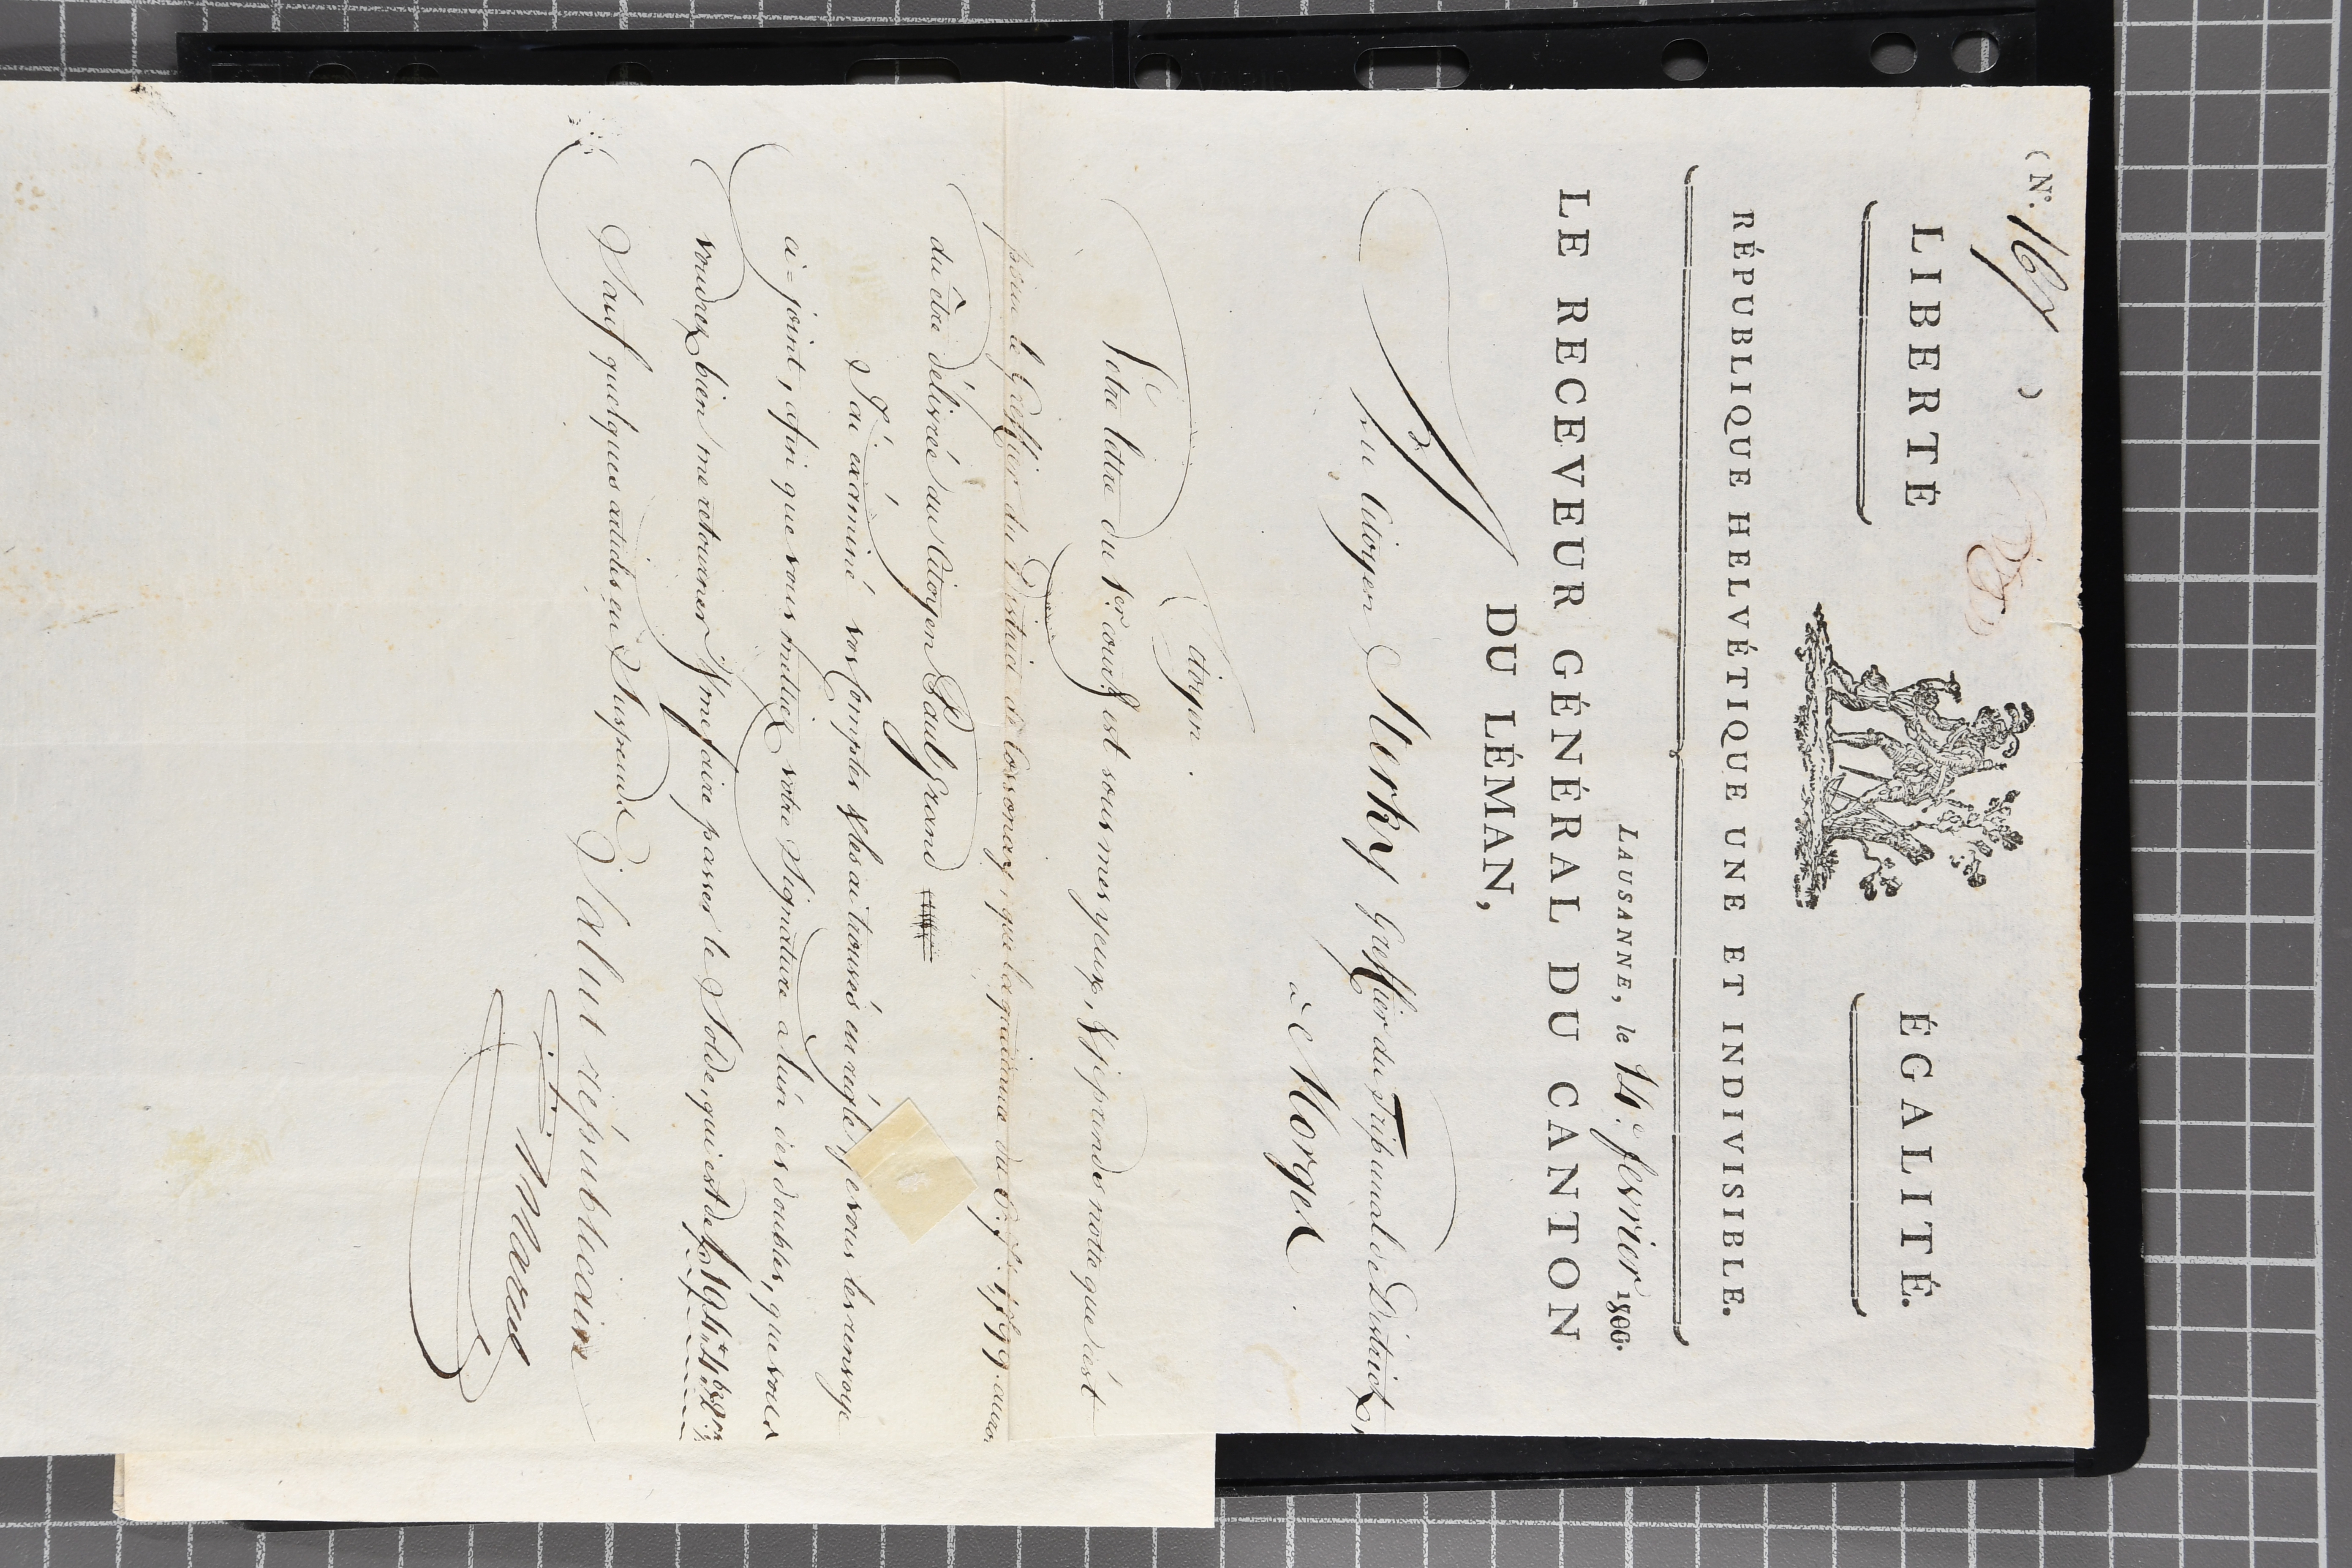 (N.º 167 )
LIBERTÉ ÉGALITÉ.
RÉPUBLIQUE HELVÉTIQUE UNE ET INDIVISIBLE.
LAUSANNE, le 14.e fevrier 1800.
LE RECEVEUR GÉNÉRAL DU CANTON
DU LÉMAN,
Au Citoyen Sterky Greffier du Tribunal de District,
à Morges.
Citoyen.
Votre lettre du 1er. cour.t est sous mes yeux, & j'y prendes notte que c'est
pour le Greffier du District de Cossonay, que la quittance du 1799. auro.
du être délivrée au Citoyen Paul Grand
J'ai examiné vos Comptes & les ai trouvés en règle, je vous les renvoye
ci=joint, afin que vous mettiez votre Signature a l'un des doubles, que vous
voudrez bien me retourner & me faire passer le Solde, qui est de
Sauf quelques articles en Suspend.
Salut républicain
Marcel